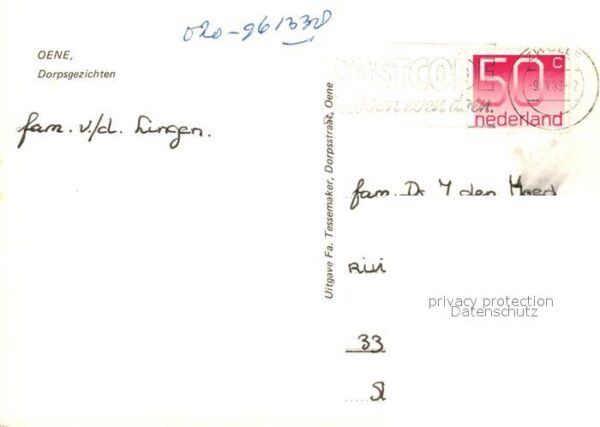 020-961338
OENE,
Dorpsgezichten
fam. v/d. Lingen.
Uitgave Fa. Tessemaker, Dorpsstraat, Oene
POSTCODE
gewoon even doen.
ZWOLLE
50 c
nederland
fam. Dr Y den
privacy protection
Datenschutz
33